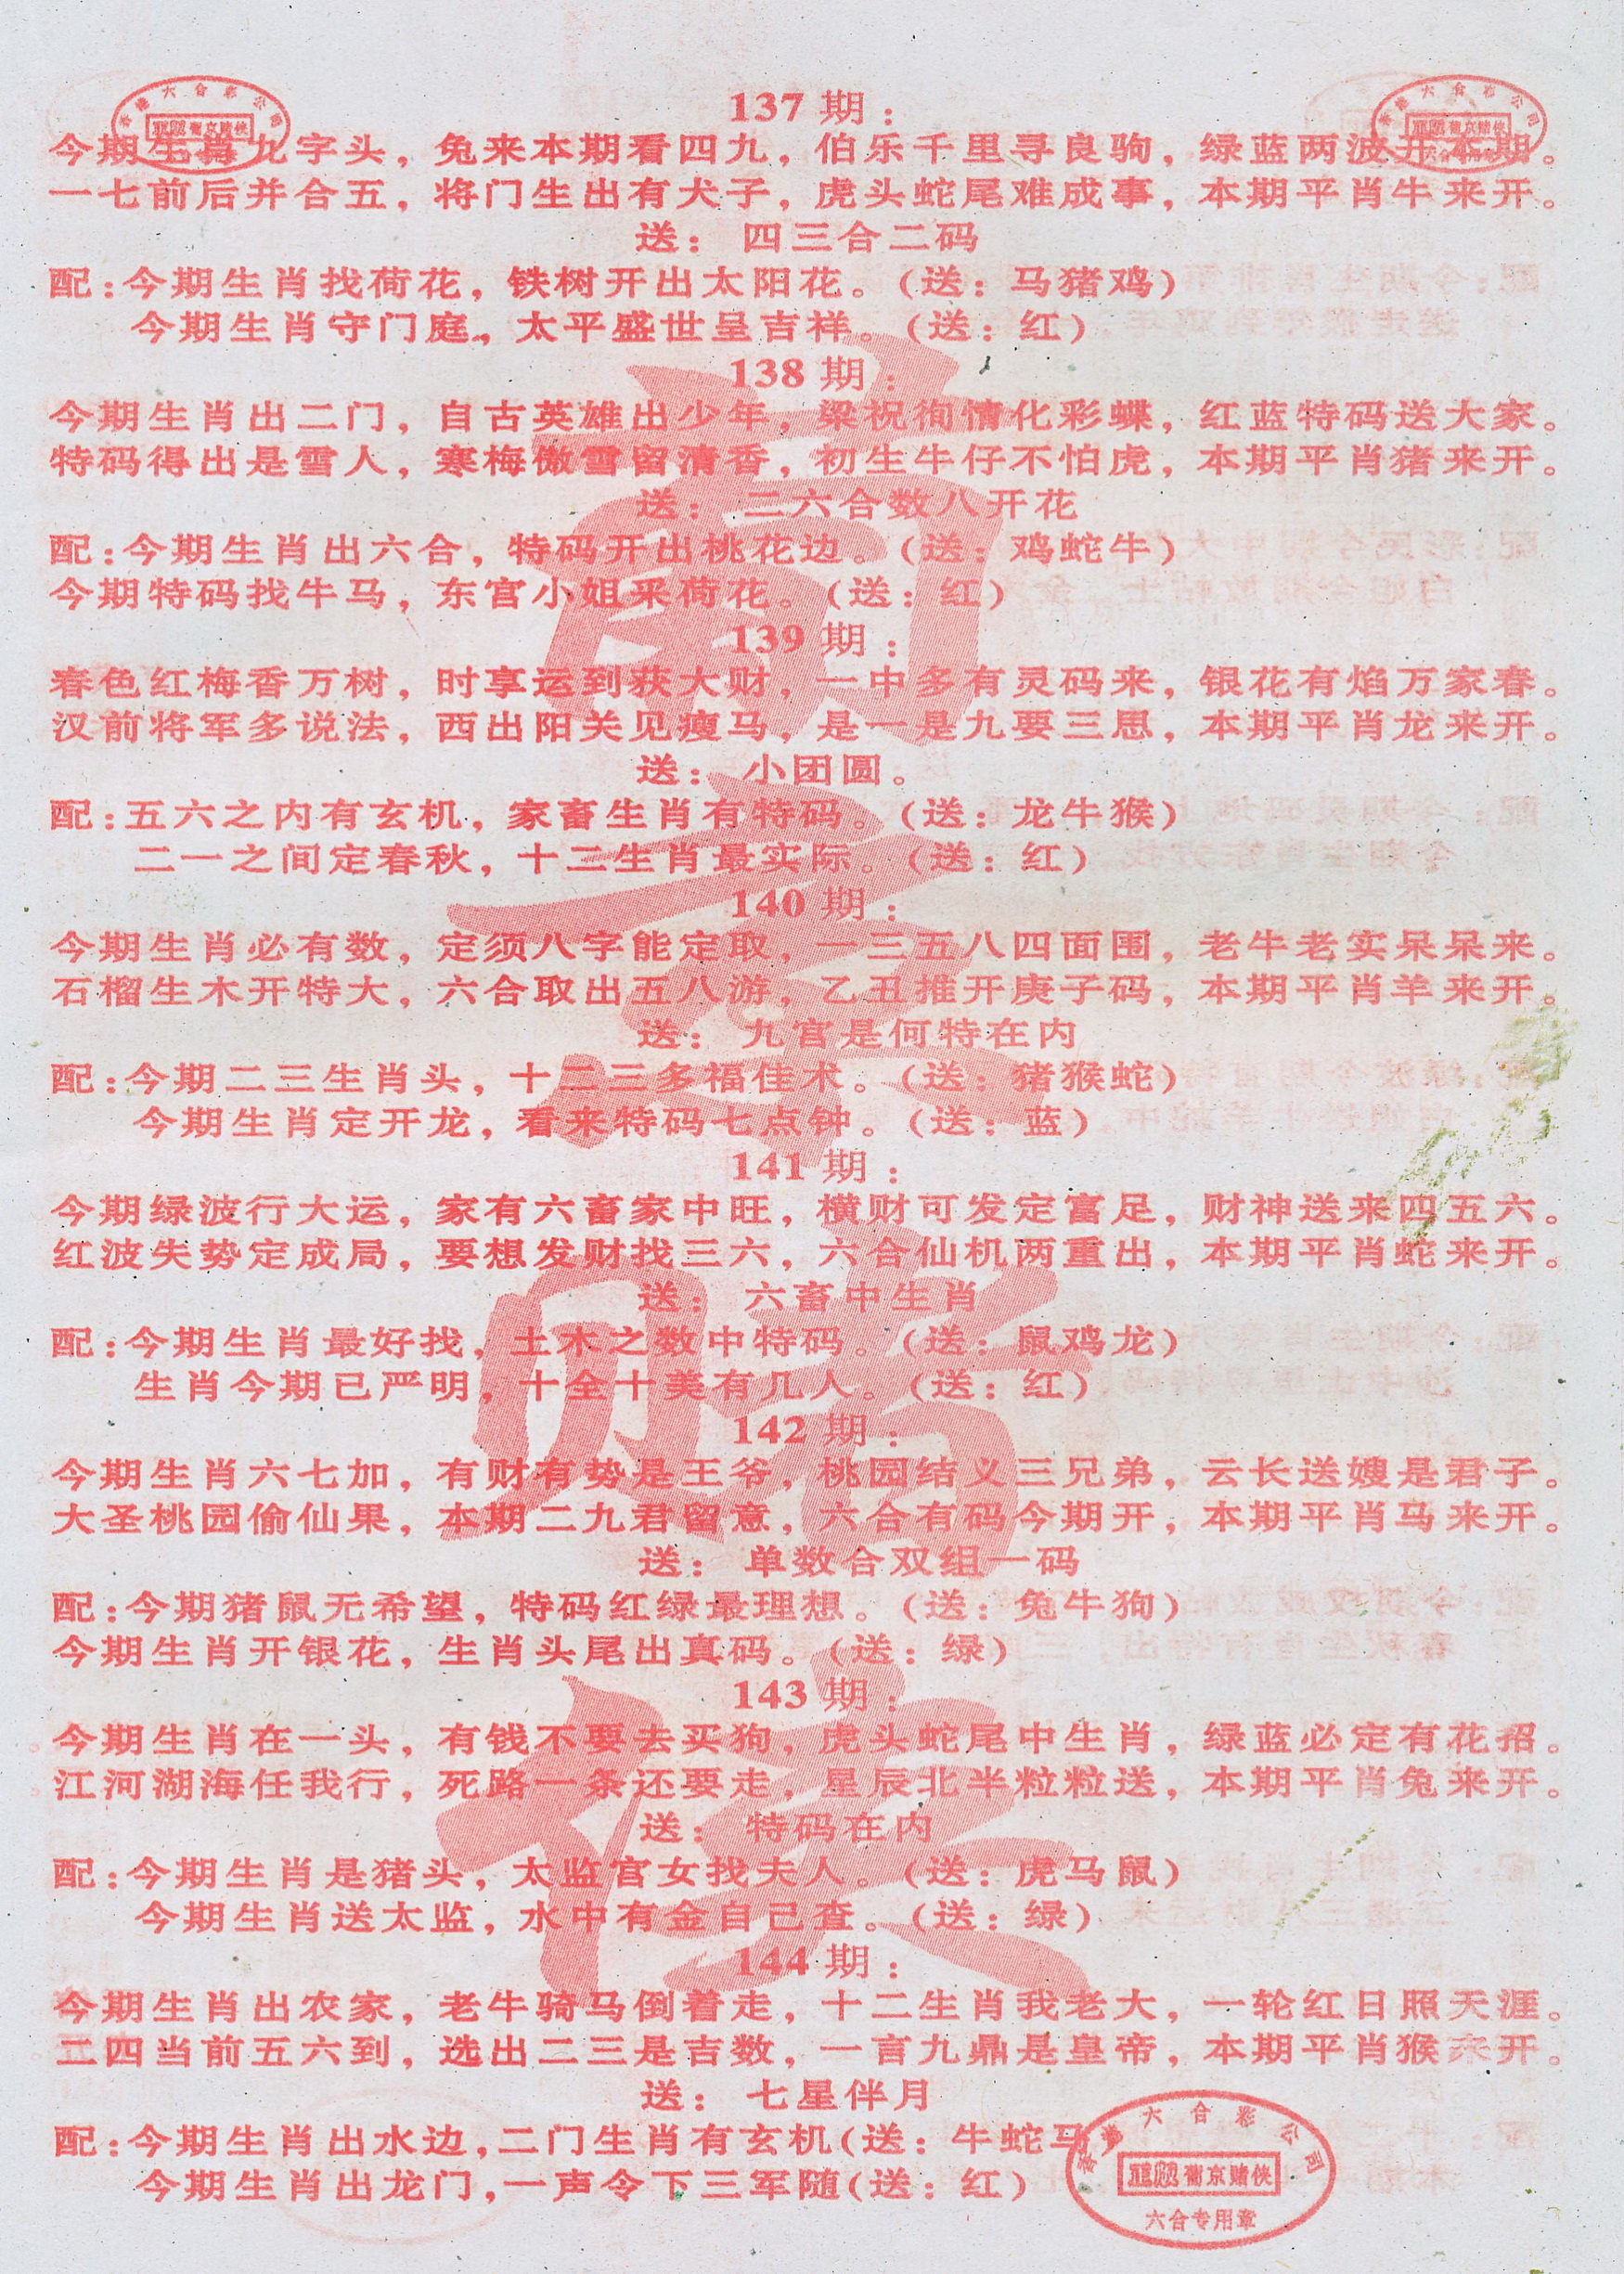 137期：
今期生肖九字头，兔来本期看四九，伯乐千里寻良驹，绿蓝两波开本期。
一七前后并合五，将门生出有犬子，虎头蛇尾难成事，本期平肖牛来开。
送：四三合二码
配：今期生肖找荷花，铁树开出太阳花。(送：马猪鸡)
今期生肖守门庭，太平盛世呈吉祥。(送：红)
138期：
今期生肖出二门，自古英雄出少年，梁祝徇情化彩蝶，红蓝特码送大家。
特码得出是雪人，寒梅傲雪留清香，初生牛仔不怕虎，本期平肖猪来开。
送：二六合数八开花
配：今期生肖出六合，特码开出桃花边。(送：鸡蛇牛)
今期特码找牛马，东宫小姐采荷花。(送：红)
139期：
春色红梅香万树，时享运到获大财，一中多有灵码来，银花有焰万家春。
汉前将军多说法，西出阳关见瘦马，是一是九要三思，本期平肖龙来开。
送：小团圆。
配：五六之内有玄机，家畜生肖有特码。(送：龙牛猴)
二一之间定春秋，十二生肖最实际。(送：红)
140期：
今期生肖必有数，定须八字能定取，一三五八四面围，老牛老实呆呆来。
石榴生木开特大，六合取出五八游，乙丑推开庚子码，本期平肖羊来开。
送：九宫是何特在内
配：今期二三生肖头，十二三多福佳术。(送：猪猴蛇)
今期生肖定开龙，看来特码七点钟。(送：蓝)
141期：
今期绿波行大运，家有六畜家中旺，横财可发定富足，财神送来四五六。
红波失势定成局，要想发财找三六，六合仙机两重出，本期平肖蛇来开。
送：六畜中生肖
配：今期生肖最好找，土木之数中特码。(送：鼠鸡龙)
生肖今期已严明，十全十美有几人。(送：红)
142期：
今期生肖六七加，有财有势是王爷，桃园结义三兄弟，云长送嫂是君子。
大圣桃园偷仙果，本期二九君留意，六合有码今期开，本期平肖马来开。
送：单数合双组一码
配：今期猪鼠无希望，特码红绿最理想。(送：兔牛狗)
今期生肖开银花，生肖头尾出真码。(送：绿)
143期：
今期生肖在一头，有钱不要去买狗，虎头蛇尾中生肖，绿蓝必定有花招。
江河湖海任我行，死路一条还要走，星辰北半粒粒送，本期平肖兔来开。
送：特码在内
配：今期生肖是猪头，太监宫女找夫人。(送：虎马鼠)
今期生肖送太监，水中有金自己查。(送：绿)
144期：
今期生肖出农家，老牛骑马倒着走，十二生肖我老大，一轮红日照天涯。
二四当前五六到，选出二三是吉数，一言九鼎是皇帝，本期平肖猴来开。
送：七星伴月
配：今期生肖出水边，二门生肖有玄机(送：牛蛇马
今期生肖出龙门，一声令下三军随(送：红)
香港六合彩公司
葡京赌侠
六合专用章
葡京赌侠